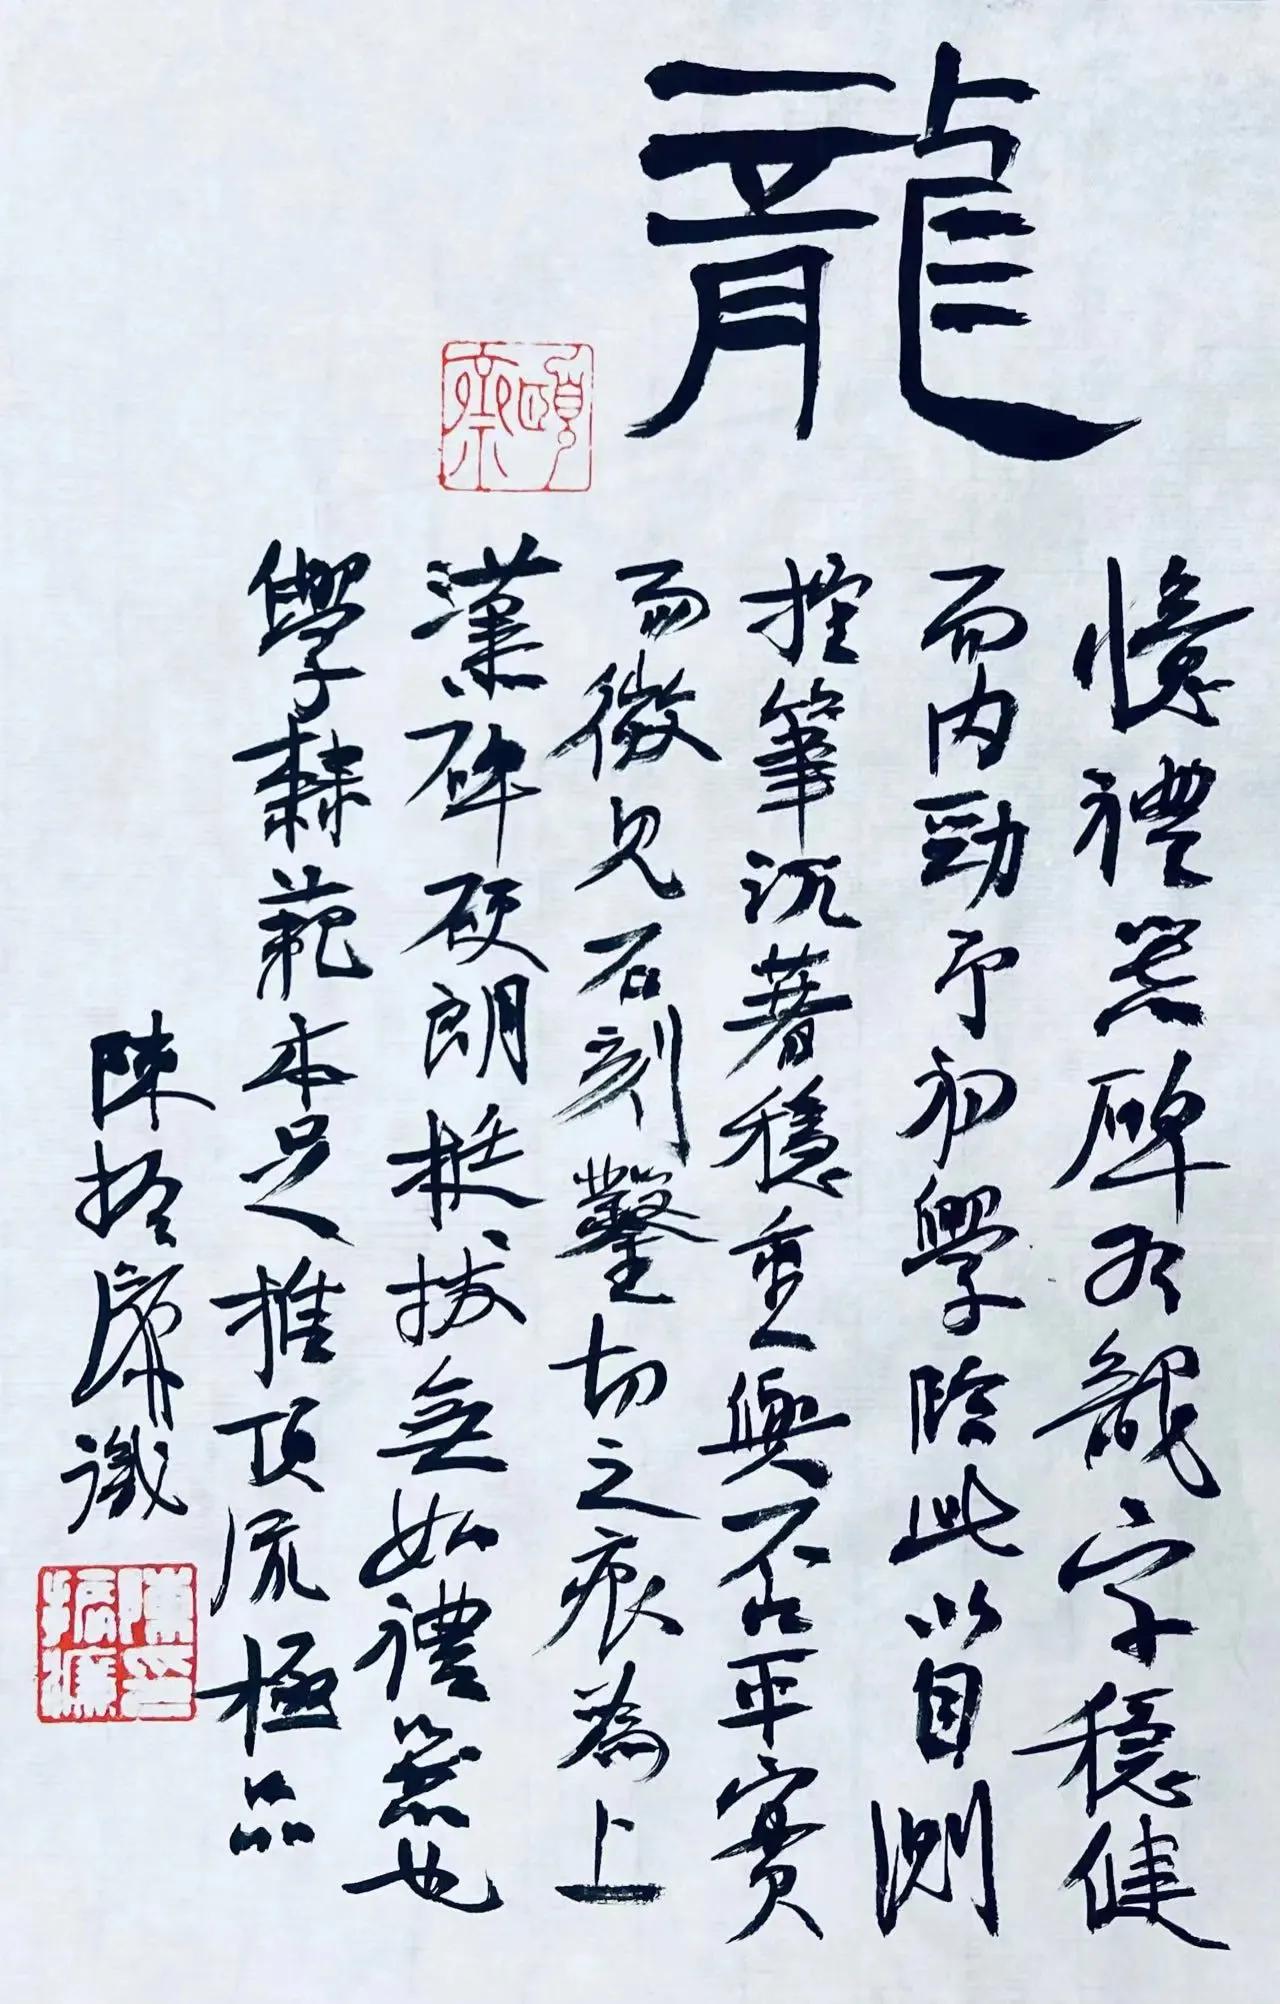 龍
頤齋
憶禮器碑有龍字穩健
而内勁予初學臨此以自測
控筆沉著穩重與不否平實
而微見石刻鑿切之痕為上
漢碑硬朗挺拔無如禮器也
學隸範本足推頂流極品
陳振廉識
陳印振濂